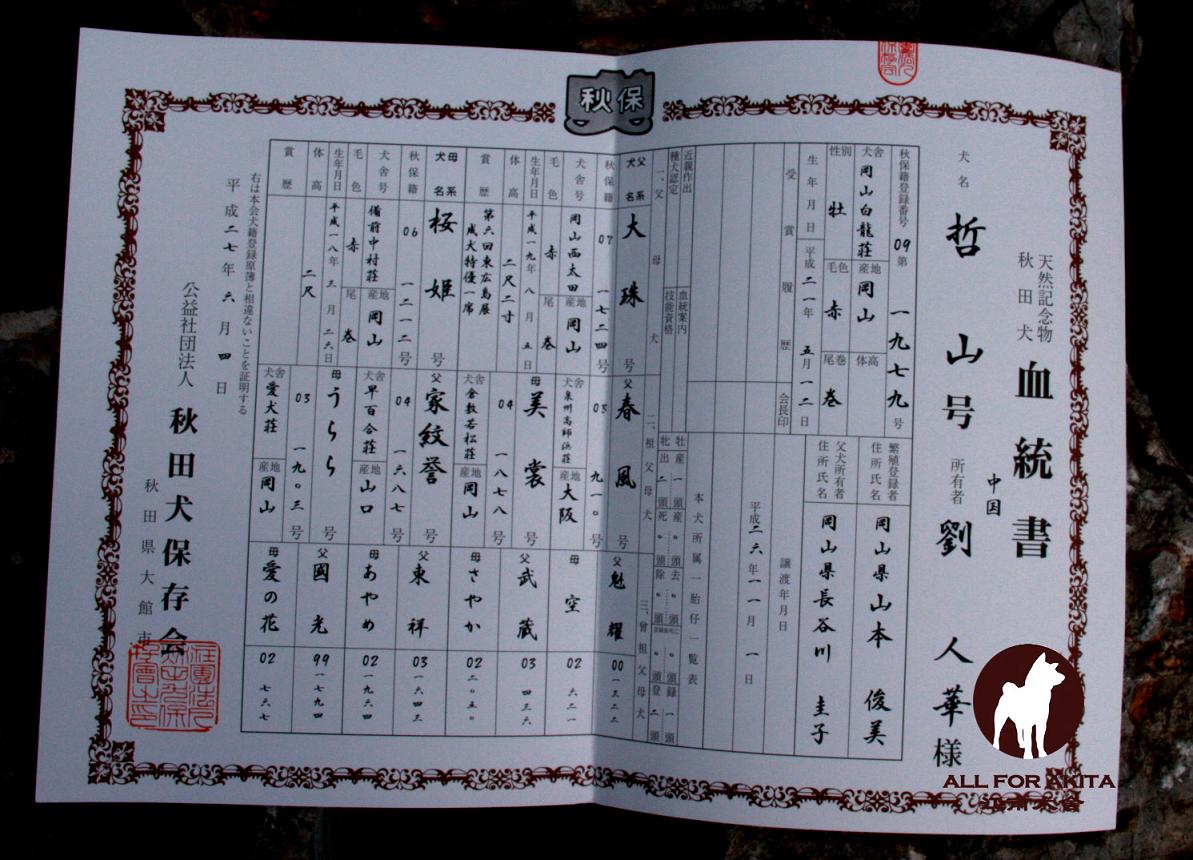 秋保
天然記念物
秋田犬
血統書
中国
犬名
哲山号
所有者
劉人華様
秋保籍登録番号
09第一九七九号
犬舎
岡山白龍荘
産地
岡山
体高
性別
牡
毛色
赤
尾巻
巻
生年月日
平成二一年五月一二日
受賞履歴
会長印
繁殖登録者
住所氏名
岡山県山本俊美
父犬所有者
住所氏名
岡山県長谷川圭子
譲渡年月日
平成二六年一一月一日
本犬所属一胎仔一覧表
近親作出
種犬認定
血統案内
技能資格
牡産一頭産〃頭去〃頭〃頭録一頭
牝出二頭死〃頭除〃頭〃頭登二頭
一、父母犬
二、祖父母犬
三、曾祖父母犬
父系
犬名
大珠号
秋保籍
07一七二四号
犬舎号
岡山西太田
産地
岡山
毛色
赤
尾
巻
生年月日
平成一九年八月五日
体高
二尺二寸
賞歴
第六回東広島展
成犬特優一席
母系
犬名
桜姫号
秋保籍
06一二一二号
犬舎号
備前中村荘
産地
岡山
毛色
赤
尾
巻
生年月日
平成一八年三月二六日
体高
二尺
賞歴
父
春風号
03九一〇号
犬舎
泉州高師浜荘
産地
大阪
母
美裳号
04一八七八号
犬舎
倉敷若松荘
産地
岡山
父
家紋誉号
04一六八七号
犬舎
早百合荘
産地
山口
母
うらら号
03一九〇三号
犬舎
愛犬荘
産地
岡山
父
魁耀
00一三二二
母
空
02六二一
父
武蔵
03四三六
母
さやか
02二〇五〇
父
東祥
03一六四三
母
あやめ
02一九六四
父
國光
99一七九四
母
愛の花
02七六七
右は本会犬籍登録原簿と相違ないことを証明する
平成二七年六月四日
公益社団法人
秋田犬保存会
秋田県大館市
ALL FOR AKITA